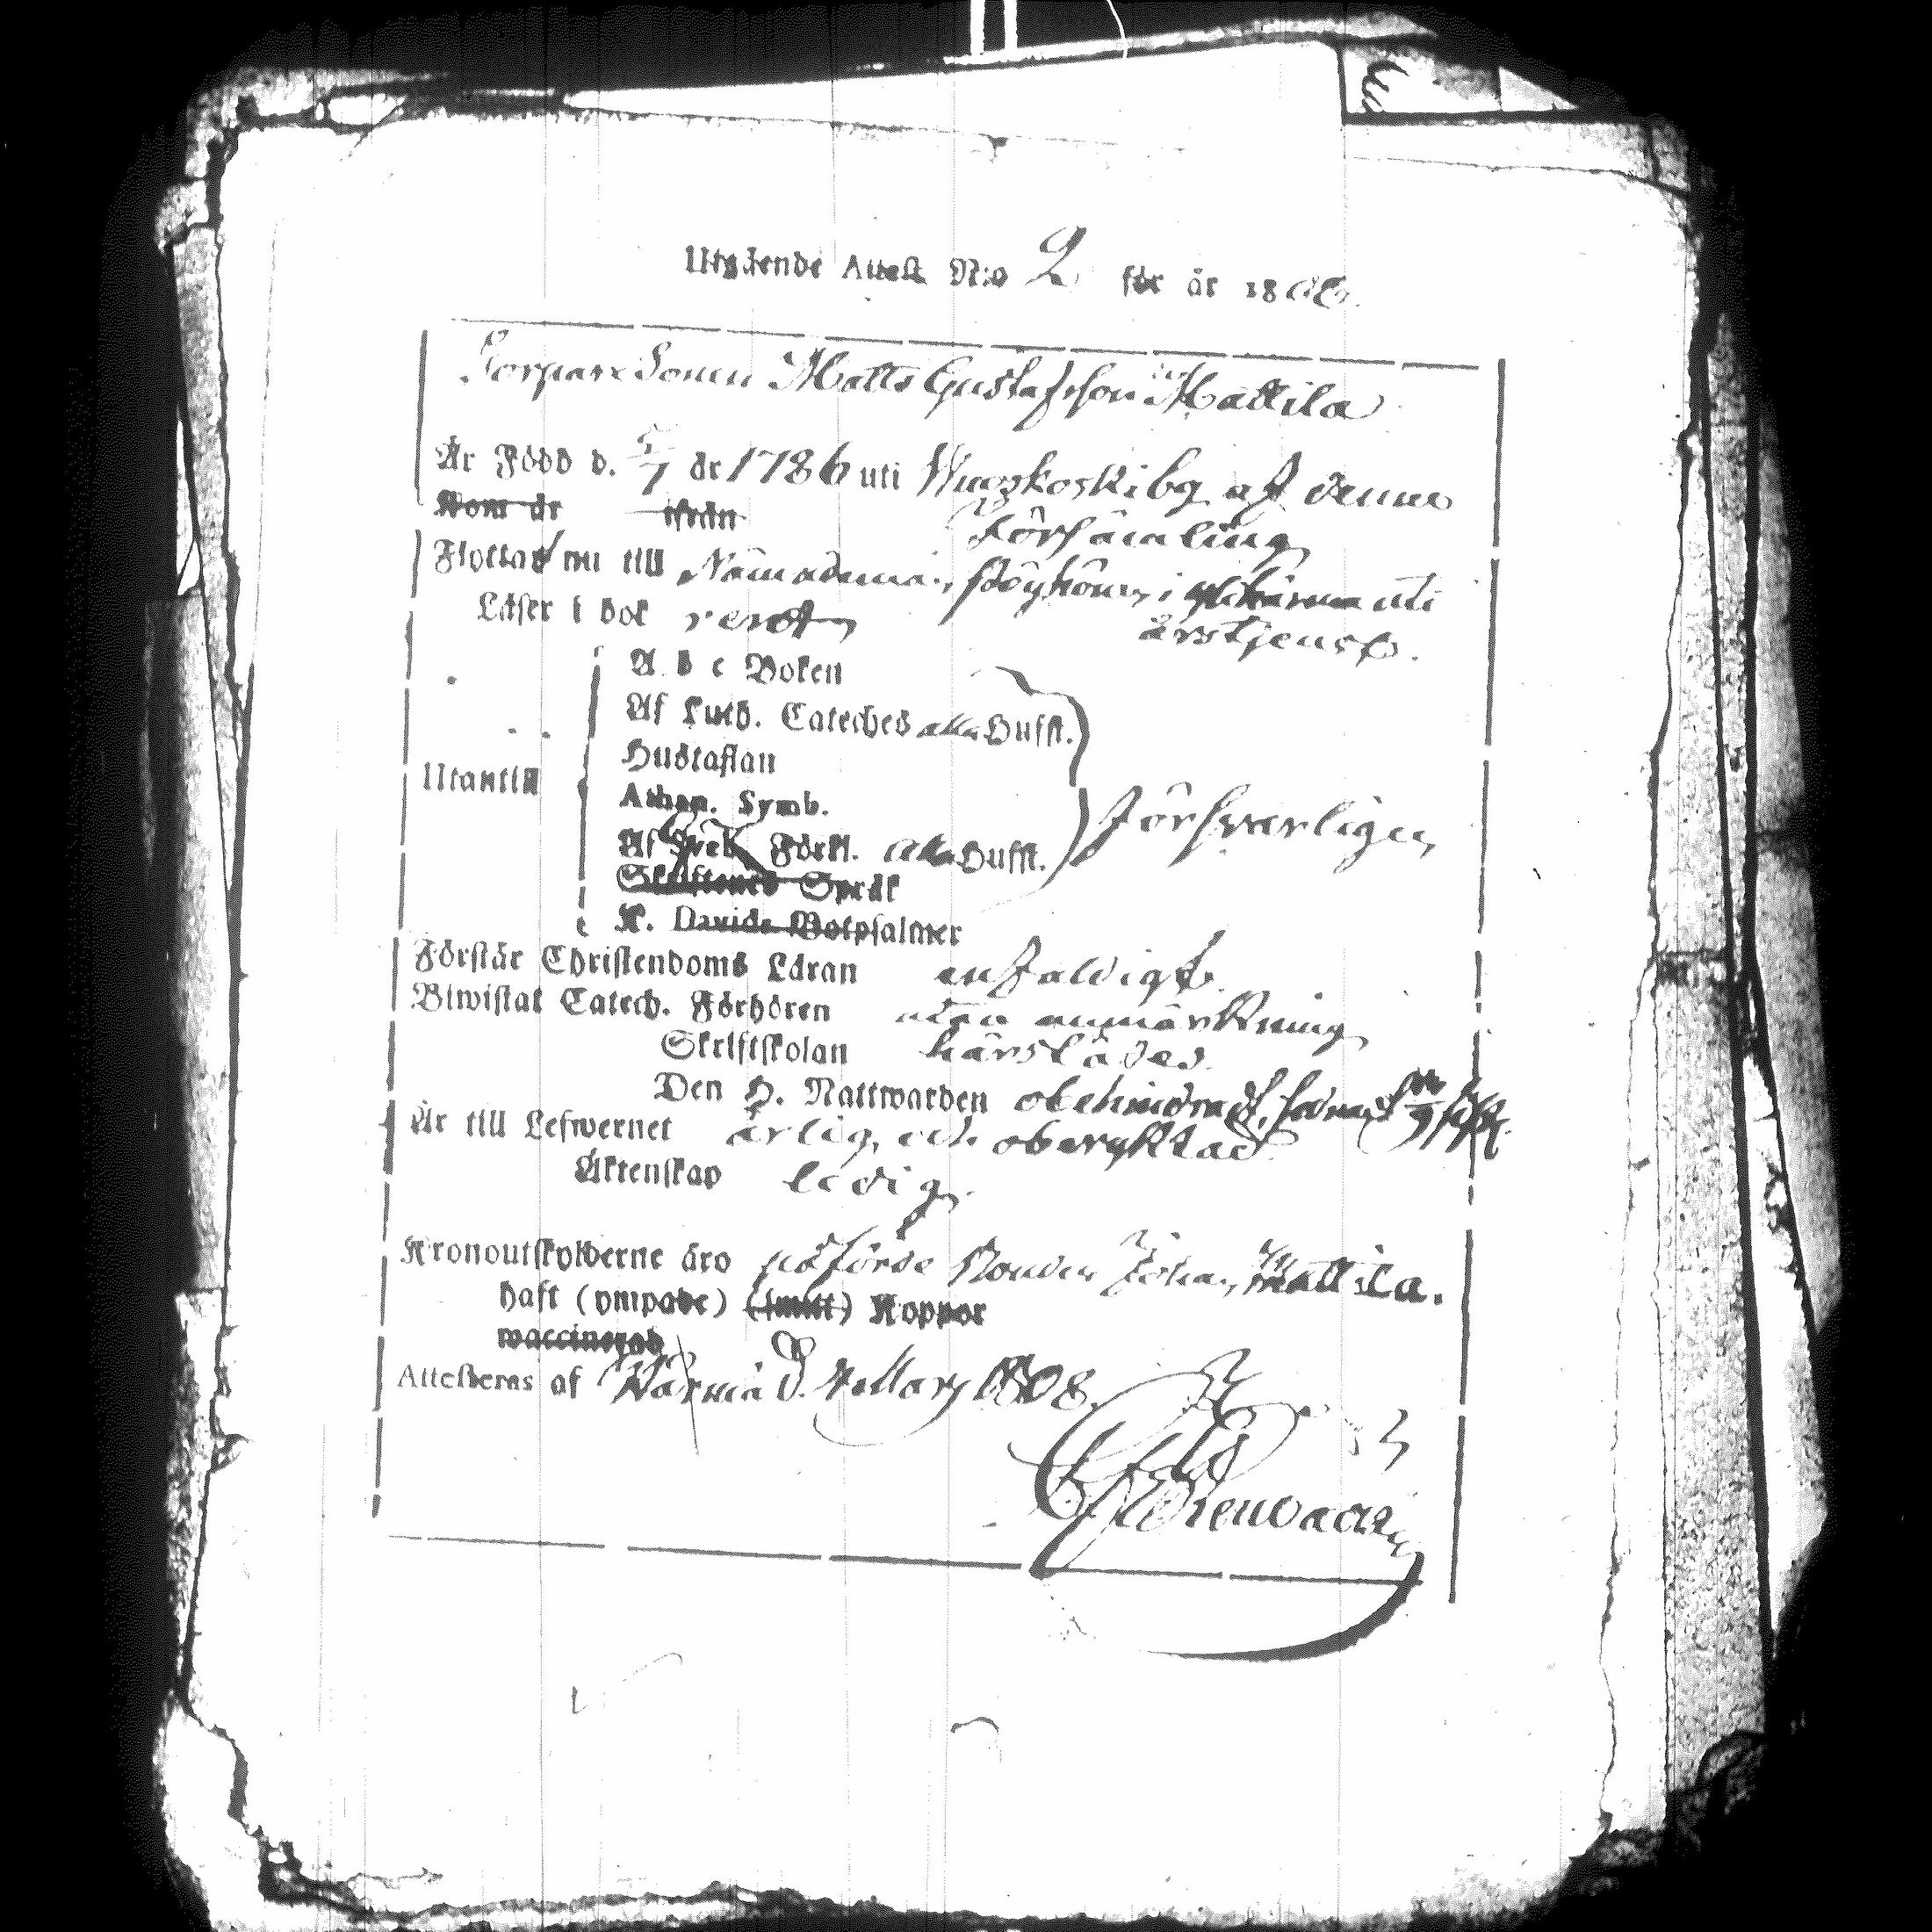 Utgående Attest N:o 2 för år 1808.
Torpare Sonen Matts Gustafsson Mattila
År Född d. 5/7 år 1786 uti by af denne
Kom år ifrån Församling
Flyttar nu till i uti
Läser i bok rent årstjenst.
A b c Boken
Af Luth. Cateches alla Hufst.
Hustaflan
Utantill
Athan. Symb.
försvarligen
Af Förkl. alla Hufst.
Skriftenes Språk
K. Davids Botpsalmer
Förstår Christendoms Läran enfaldigt.
Biwistat Catech. Förhören utan anmärkning
Skriftskolan härstädes
Den H. Nattwarden obehindrad, senast
Är till Lefwernet ärlig och oberyktad
Äktenskap ledig.
Kronoutskylderne äro påförde Johan Mattila.
haft (ympade) (smitt) Koppor
waccinerad
Attesteras af d. Mars 1808.